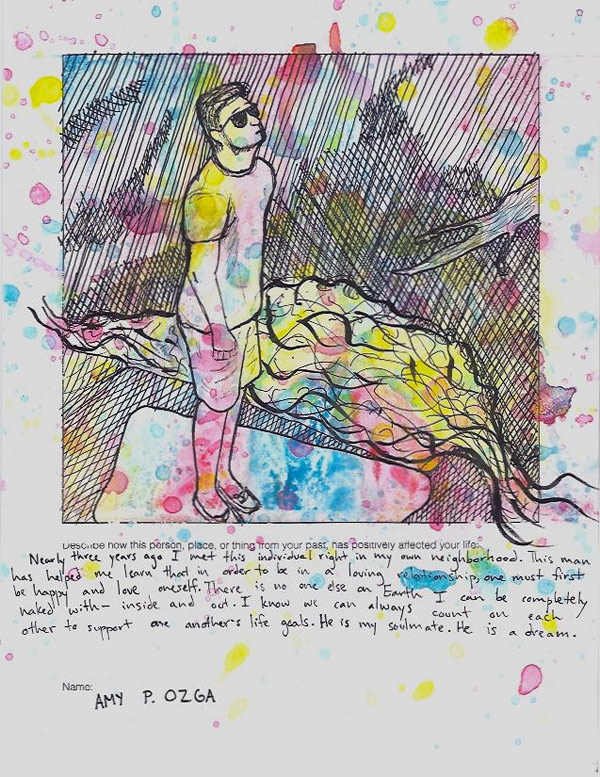 Describe how this person, place, or thing from your past, has positively affected your life:
Nearly three years ago I met this individual right in my own neighborhood. This man
has helped me learn that in order to be in a loving relationship, one must first
be happy and love oneself. There is no one else on Earth I can be completely
naked with - inside and out. I know we can always count on each
other to support one another's life goals. He is my soulmate. He is a dream.
Name:
AMY P. OZGA